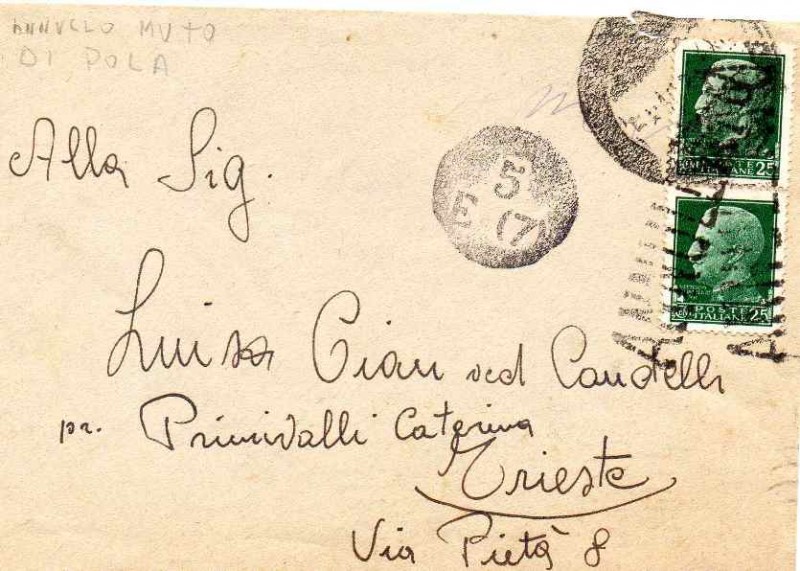 ANNULLO MUTO
DI POLA
Alla Sig.
5
E 7
25
POSTE
ITALIANE 25
Luisa Cian ved Candelli
pr. Primivalli Caterina
Trieste
Via Pietà 8